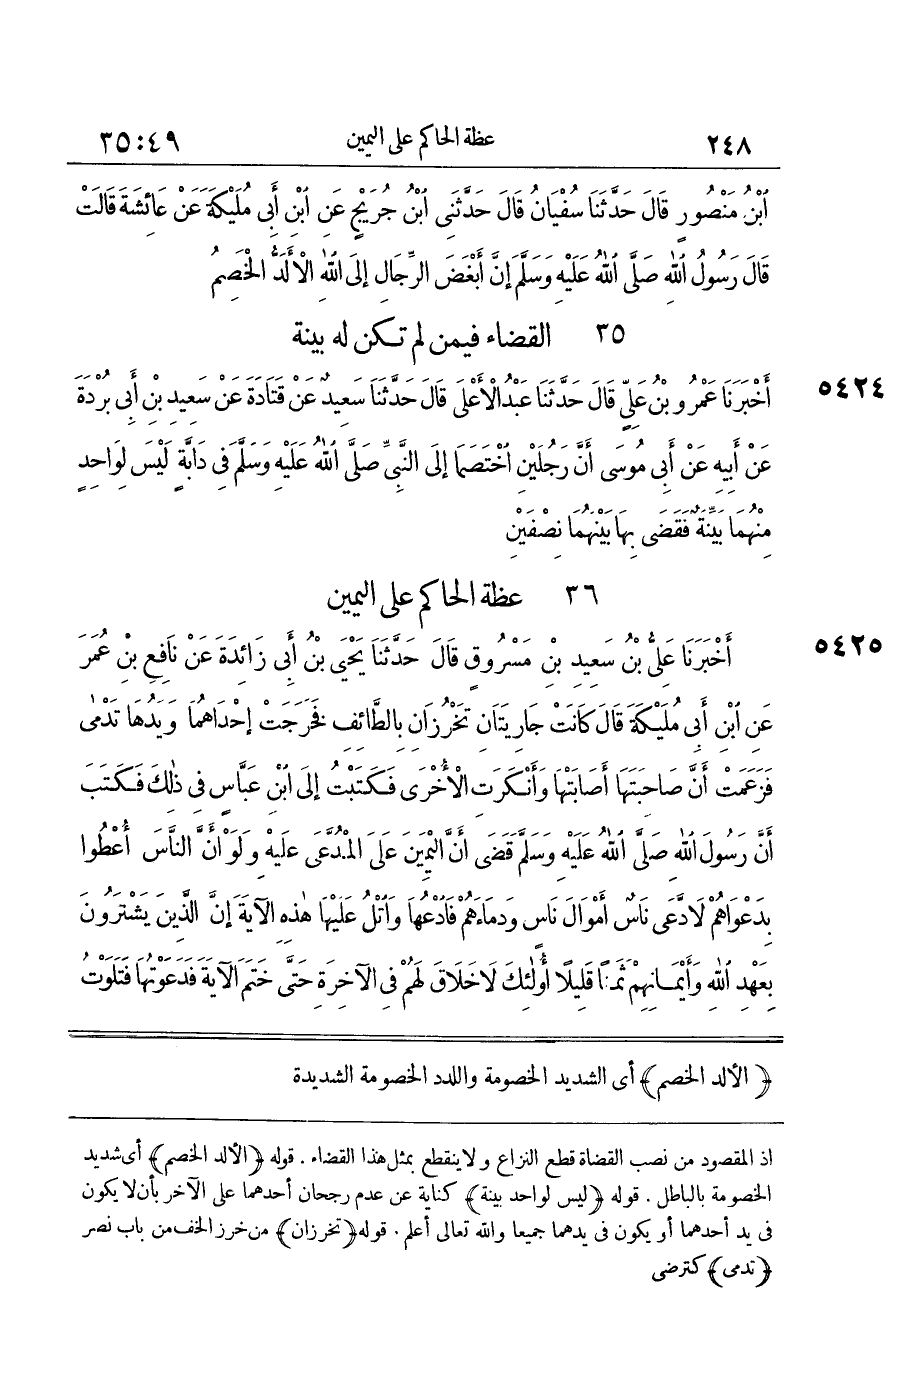 ٢٤٨ عظة الحاكم على اليمين ٣٥:٤٩
ٱبْنُ مَنْصُورٍ قَالَ حَدَّثَنَا سُفْيَانُ قَالَ حَدَّثَنِى ٱبْنُ جُرَيْجٍ عَنِ ٱبْنِ أَبِى مُلَيْكَةَ عَنْ عَائِشَةَ قَالَتْ
قَالَ رَسُولُ ٱللهِ صَلَّى ٱللهُ عَلَيْهِ وَسَلَّمَ إِنَّ أَبْغَضَ الرِّجَالِ إِلَى ٱللهِ الْأَلَدُّ الْخَصِمُ
٣٥ القضاء فيمن لم تكن له بينة
٥٤٢٤ أَخْبَرَنَا عَمْرُو بْنُ عَلِيٍّ قَالَ حَدَّثَنَا عَبْدُ الْأَعْلَى قَالَ حَدَّثَنَا سَعِيدٌ عَنْ قَتَادَةَ عَنْ سَعِيدِ بْنِ أَبِى بُرْدَةَ
عَنْ أَبِيهِ عَنْ أَبِى مُوسَى أَنَّ رَجُلَيْنِ ٱخْتَصَمَا إِلَى النَّبِىِّ صَلَّى ٱللهُ عَلَيْهِ وَسَلَّمَ فِى دَابَّةٍ لَيْسَ لِوَاحِدٍ
مِنْهُمَا بَيِّنَةٌ فَقَضَى بِهَا بَيْنَهُمَا نِصْفَيْنِ
٣٦ عظة الحاكم على اليمين
٥٤٢٥ أَخْبَرَنَا عَلِىُّ بْنُ سَعِيدِ بْنِ مَسْرُوقٍ قَالَ حَدَّثَنَا يَحْيَى بْنُ أَبِى زَائِدَةَ عَنْ نَافِعِ بْنِ عُمَرَ
عَنِ ٱبْنِ أَبِى مُلَيْكَةَ قَالَ كَانَتْ جَارِيَتَانِ تَخْرُزَانِ بِالطَّائِفِ فَخَرَجَتْ إِحْدَاهُمَا وَيَدُهَا تَدْمَى
فَزَعَمَتْ أَنَّ صَاحِبَتَهَا أَصَابَتْهَا وَأَنْكَرَتِ الْأُخْرَى فَكَتَبْتُ إِلَى ٱبْنِ عَبَّاسٍ فِى ذٰلِكَ فَكَتَبَ
أَنَّ رَسُولَ ٱللهِ صَلَّى ٱللهُ عَلَيْهِ وَسَلَّمَ قَضَى أَنَّ الْيَمِينَ عَلَى الْمُدَّعَى عَلَيْهِ وَلَوْ أَنَّ النَّاسَ أُعْطُوا
بِدَعْوَاهُمْ لَادَّعَى نَاسٌ أَمْوَالَ نَاسٍ وَدِمَاءَهُمْ فَادْعُهَا وَٱتْلُ عَلَيْهَا هٰذِهِ الآيَةَ إِنَّ الَّذِينَ يَشْتَرُونَ
بِعَهْدِ ٱللهِ وَأَيْمَـانِهِمْ ثَمَنًا قَلِيلًا أُولٰئِكَ لَا خَلَاقَ لَهُمْ فِى الآخِرَةِ حَتَّى خَتَمَ الآيَةَ فَدَعَوْتُهَا فَتَلَوْتُ
﴿الألد الخصم﴾ أى الشديد الخصومة واللدد الخصومة الشديدة
اذ المقصود من نصب القضاة قطع النزاع ولا ينقطع بمثل هذا القضاء . قوله ﴿الألد الخصم﴾ أى شديد
الخصومة بالباطل . قوله ﴿ليس لواحد بينة﴾ كناية عن عدم رجحان أحدهما على الآخر بأن لا يكون
فى يد أحدهما أو يكون فى يدهما جميعا والله تعالى أعلم . قوله ﴿تخرزان﴾ من خرز الخف من باب نصر
﴿تدمى﴾ كترضى